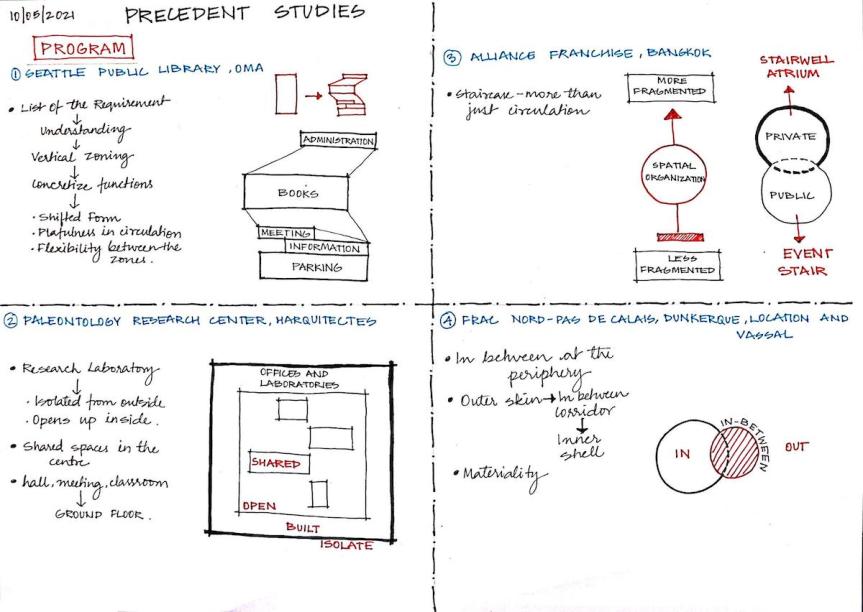 10/05/2021
PRECEDENT STUDIES
PROGRAM
① SEATTLE PUBLIC LIBRARY, OMA
• List of the Requirement
↓
Understanding
↓
Vertical Zoning
↓
Concretize functions
↓
• Shifted Form
• Plafulness in circulation
• Flexibility between the
zones.
ADMINISTRATION
BOOKS
MEETING
INFORMATION
PARKING
② PALEONTOLOGY RESEARCH CENTER, HARQUITECTES
• Research Laboratory
↓
• Isolated from outside
• Opens up inside.
• Shared spaces in the
centre
• hall, meeting, classroom
↓
GROUND FLOOR.
OFFICES AND
LABORATORIES
SHARED
OPEN
BUILT
ISOLATE
③ ALLIANCE FRANCHISE, BANGKOK
• Staircase - more than
just circulation
MORE
FRAGMENTED
SPATIAL
ORGANIZATION
LESS
FRAGMENTED
STAIRWELL
ATRIUM
PRIVATE
PUBLIC
EVENT
STAIR
④ FRAC NORD-PAS DE CALAIS, DUNKERQUE, LOCATION AND
VASSAL
• In between at the
periphery
• Outer skin → In between
corridor
↓
Inner
shell
• Materiality
IN
IN-BETWEEN
OUT